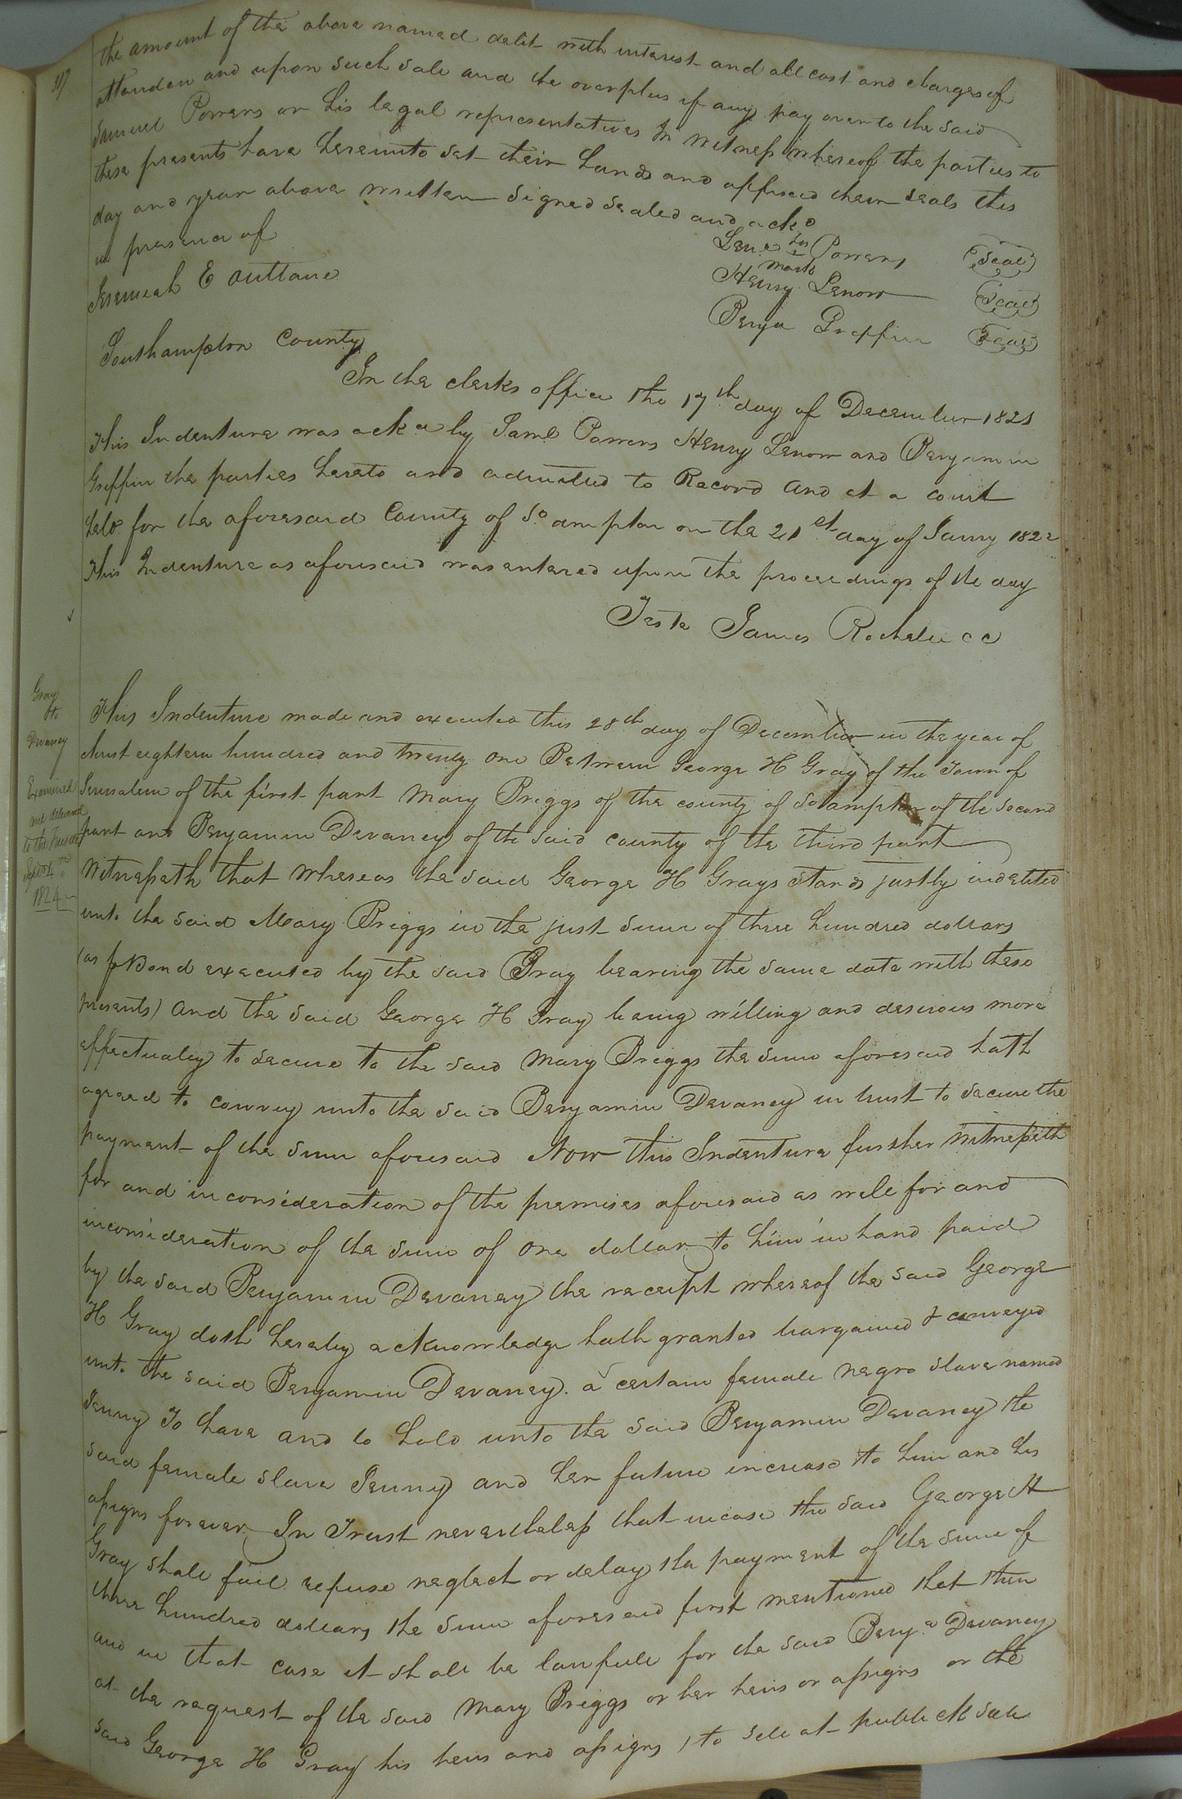 the amount of the above named debt with interest and all cost and charges of
attenden and upon such sale and the overplus if any pay over to the said
Samuel Powers or his legal representatives In witness whereof the parties to
these presents have hereunto set their hands and affixed their seals this
day and year above written Signed sealed and ackd
in presence of
Jeremiah E Outland
his Powers (Seal)
mark
Henry Lenow (Seal)
Benja Griffin (Seal)
Southampton County
In the clerks office the 17th day of December 1821
This Indenture was ackd by Saml Powers Henry Lenow and Benjamin
Griffin the parties hereto and admitted to Record and at a court
held for the aforesaid County of So ampton on the 21st day of Janry 1822
This Indenture as aforesaid was entered upon the proceedings of the day
Teste James Rochelle CC
Gray
to
Devaney
Examined
and delivered
to the
Sept 4th
1824
This Indenture made and executed this 28th day of December in the year of
christ eighteen hundred and twenty one Between George H Gray of the Town of
Jerusalem of the first part Mary Briggs of the county of So ampton of the second
part and Benjamin Devaney of the said county of the third part
Witnesseth that whereas the said George H Grays stands justly indebted
unto the said Mary Briggs in the just sum of three hundred dollars
(as p Bond executed by the said Gray bearing the same date with these
presents) And the said George H Gray being willing and desirous more
effectualey to secure to the said Mary Briggs the sum aforesaid hath
agreed to convey unto the said Benjamin Devaney in trust to secure the
payment of the sum aforesaid Now this Indenture further witnesseth
for and in consideration of the premises aforesaid as well for and
inconsideration of the sum of one dollar to him in hand paid
by the said Benjamin Devaney the receipt whereof the said George
H Gray doth hereby acknowledge hath granted bargained & conveyed
unto the said Benjamin Devaney a certain female negro slave named
Jenny To have and to hold unto the said Benjamin Devaney the
said female slave Jenny and her future increase to him and his
assigns forever In Trust nevertheless that incase the said George H
Gray shall fail refuse neglect or delay the payment of the sum of
three hundred dollars the sum aforesaid first mentioned that then
and in that case it shall be lawfull for the said Benja Devaney
at the request of the said Mary Briggs or her heirs or assigns or the
said George H Gray his heirs and assigns, to sell at publick sale